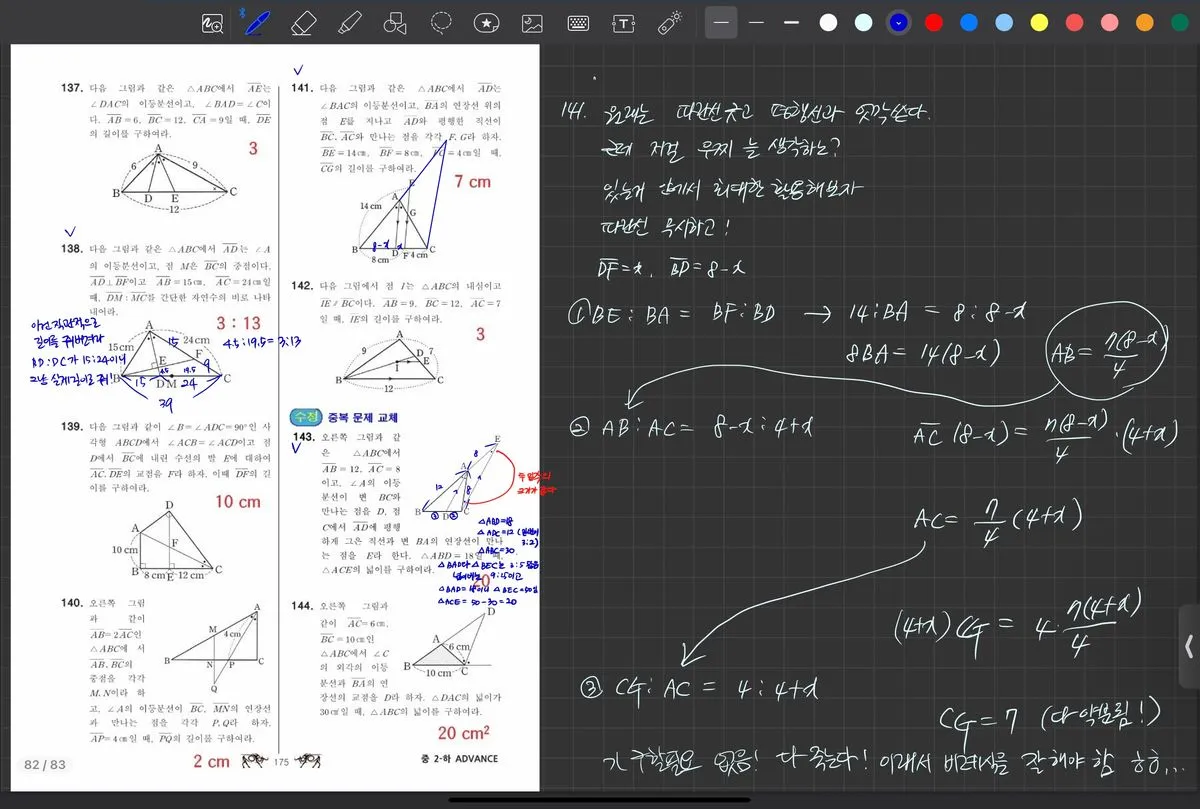 137. 다음 그림과 같은 △ABC에서 AE는
∠DAC의 이등분선이고, ∠BAD=∠C이
다. AB=6, BC=12, CA=9일 때, DE
의 길이를 구하여라.
3
A
6
9
B
D
E
C
12
138. 다음 그림과 같은 △ABC에서 AD는 ∠A
의 이등분선이고, 점 M은 BC의 중점이다.
AD⊥BF이고 AB=15cm, AC=24cm일
때, DM:MC를 간단한 자연수의 비로 나타
내어라.
3 : 13
길이를 줘버린다
BD:DC가 15:24이니
A
15cm
15
24cm
F
E
9
4.5
19.5
B
D M
C
15
24
39
4.5:19.5=3:13
139. 다음 그림과 같이 ∠B=∠ADC=90°인 사
각형 ABCD에서 ∠ACB=∠ACD이고 점
D에서 BC에 내린 수선의 발 E에 대하여
AC, DE의 교점을 F라 하자. 이때 DF의 길
이를 구하여라.
10 cm
D
A
F
10cm
B
8cm
E
12cm
C
140. 오른쪽 그림
과 같이
AB=2AC인
△ABC에서
AB, BC의
중점을 각각
M, N이라 하
고, ∠A의 이등분선이 BC, MN의 연장선
과 만나는 점을 각각 P, Q라 하자.
AP=4cm일 때, PQ의 길이를 구하여라.
A
M
4cm
B
N
P
C
Q
2 cm
82 / 83
141. 다음 그림과 같은 △ABC에서 AD는
∠BAC의 이등분선이고, BA의 연장선 위의
점 E를 지나고 AD와 평행한 직선이
BC, AC와 만나는 점을 각각 F, G라 하자.
BE=14cm, BF=8cm, FC=4cm일 때,
CG의 길이를 구하여라.
7 cm
E
A
14cm
G
8-x
x
B
D
F
4cm
C
8cm
142. 다음 그림에서 점 I는 △ABC의 내심이고
IE∥BC이다. AB=9, BC=12, AC=7
일 때, IE의 길이를 구하여라.
3
A
9
D
7
E
I
B
12
C
수정 중복 문제 교체
143. 오른쪽 그림과 같
은 △ABC에서
AB=12, AC=8
이고, ∠A의 이등
분선이 변 BC와
만나는 점을 D, 점
C에서 AD에 평행
하게 그은 직선과 변 BA의 연장선이 만나
는 점을 E라 한다. △ABD=18일 때,
△ACE의 넓이를 구하여라.
20
E
8
A
12
8
B
③
D
②
C
△ABD=18
△ADC=12
3:2)
△ABC=30
△BAD와 △BEC는 3:5 닮음
넓이비는 9:25이고
△BAD=18이니 △BEC=50임
△ACE=50-30=20
144. 오른쪽 그림과
같이 AC=6cm,
BC=10cm인
△ABC에서 ∠C
의 외각의 이등
분선과 BA의 연
장선의 교점을 D라 하자. △DAC의 넓이가
30cm²일 때, △ABC의 넓이를 구하여라.
D
A
6cm
B
10cm
C
20 cm²
175
중 2-하 ADVANCE
141. 원래는 따란선 긋고 평행선과 엇각 쓴다.
근데 저걸 우찌 늘 생각하노?
있는거 안에서 최대한 활용해보자
따란선 무시하고!
DF=x, BD=8-x
① BE:BA = BF:BD → 14:BA = 8:8-x
8BA = 14(8-x)
AB= 7(8-x)/4
② AB:AC = 8-x:4+x
AC(8-x) = 7(8-x)/4 · (4+x)
AC= 7/4 (4+x)
(4+x)CG = 4· 7(4+x)/4
③ CG:AC = 4:4+x
CG=7 (다 약분됨!)
x 구할필요 없음! 다 죽는다! 이래서 비례식을 잘해야 함 ㅎㅎ...